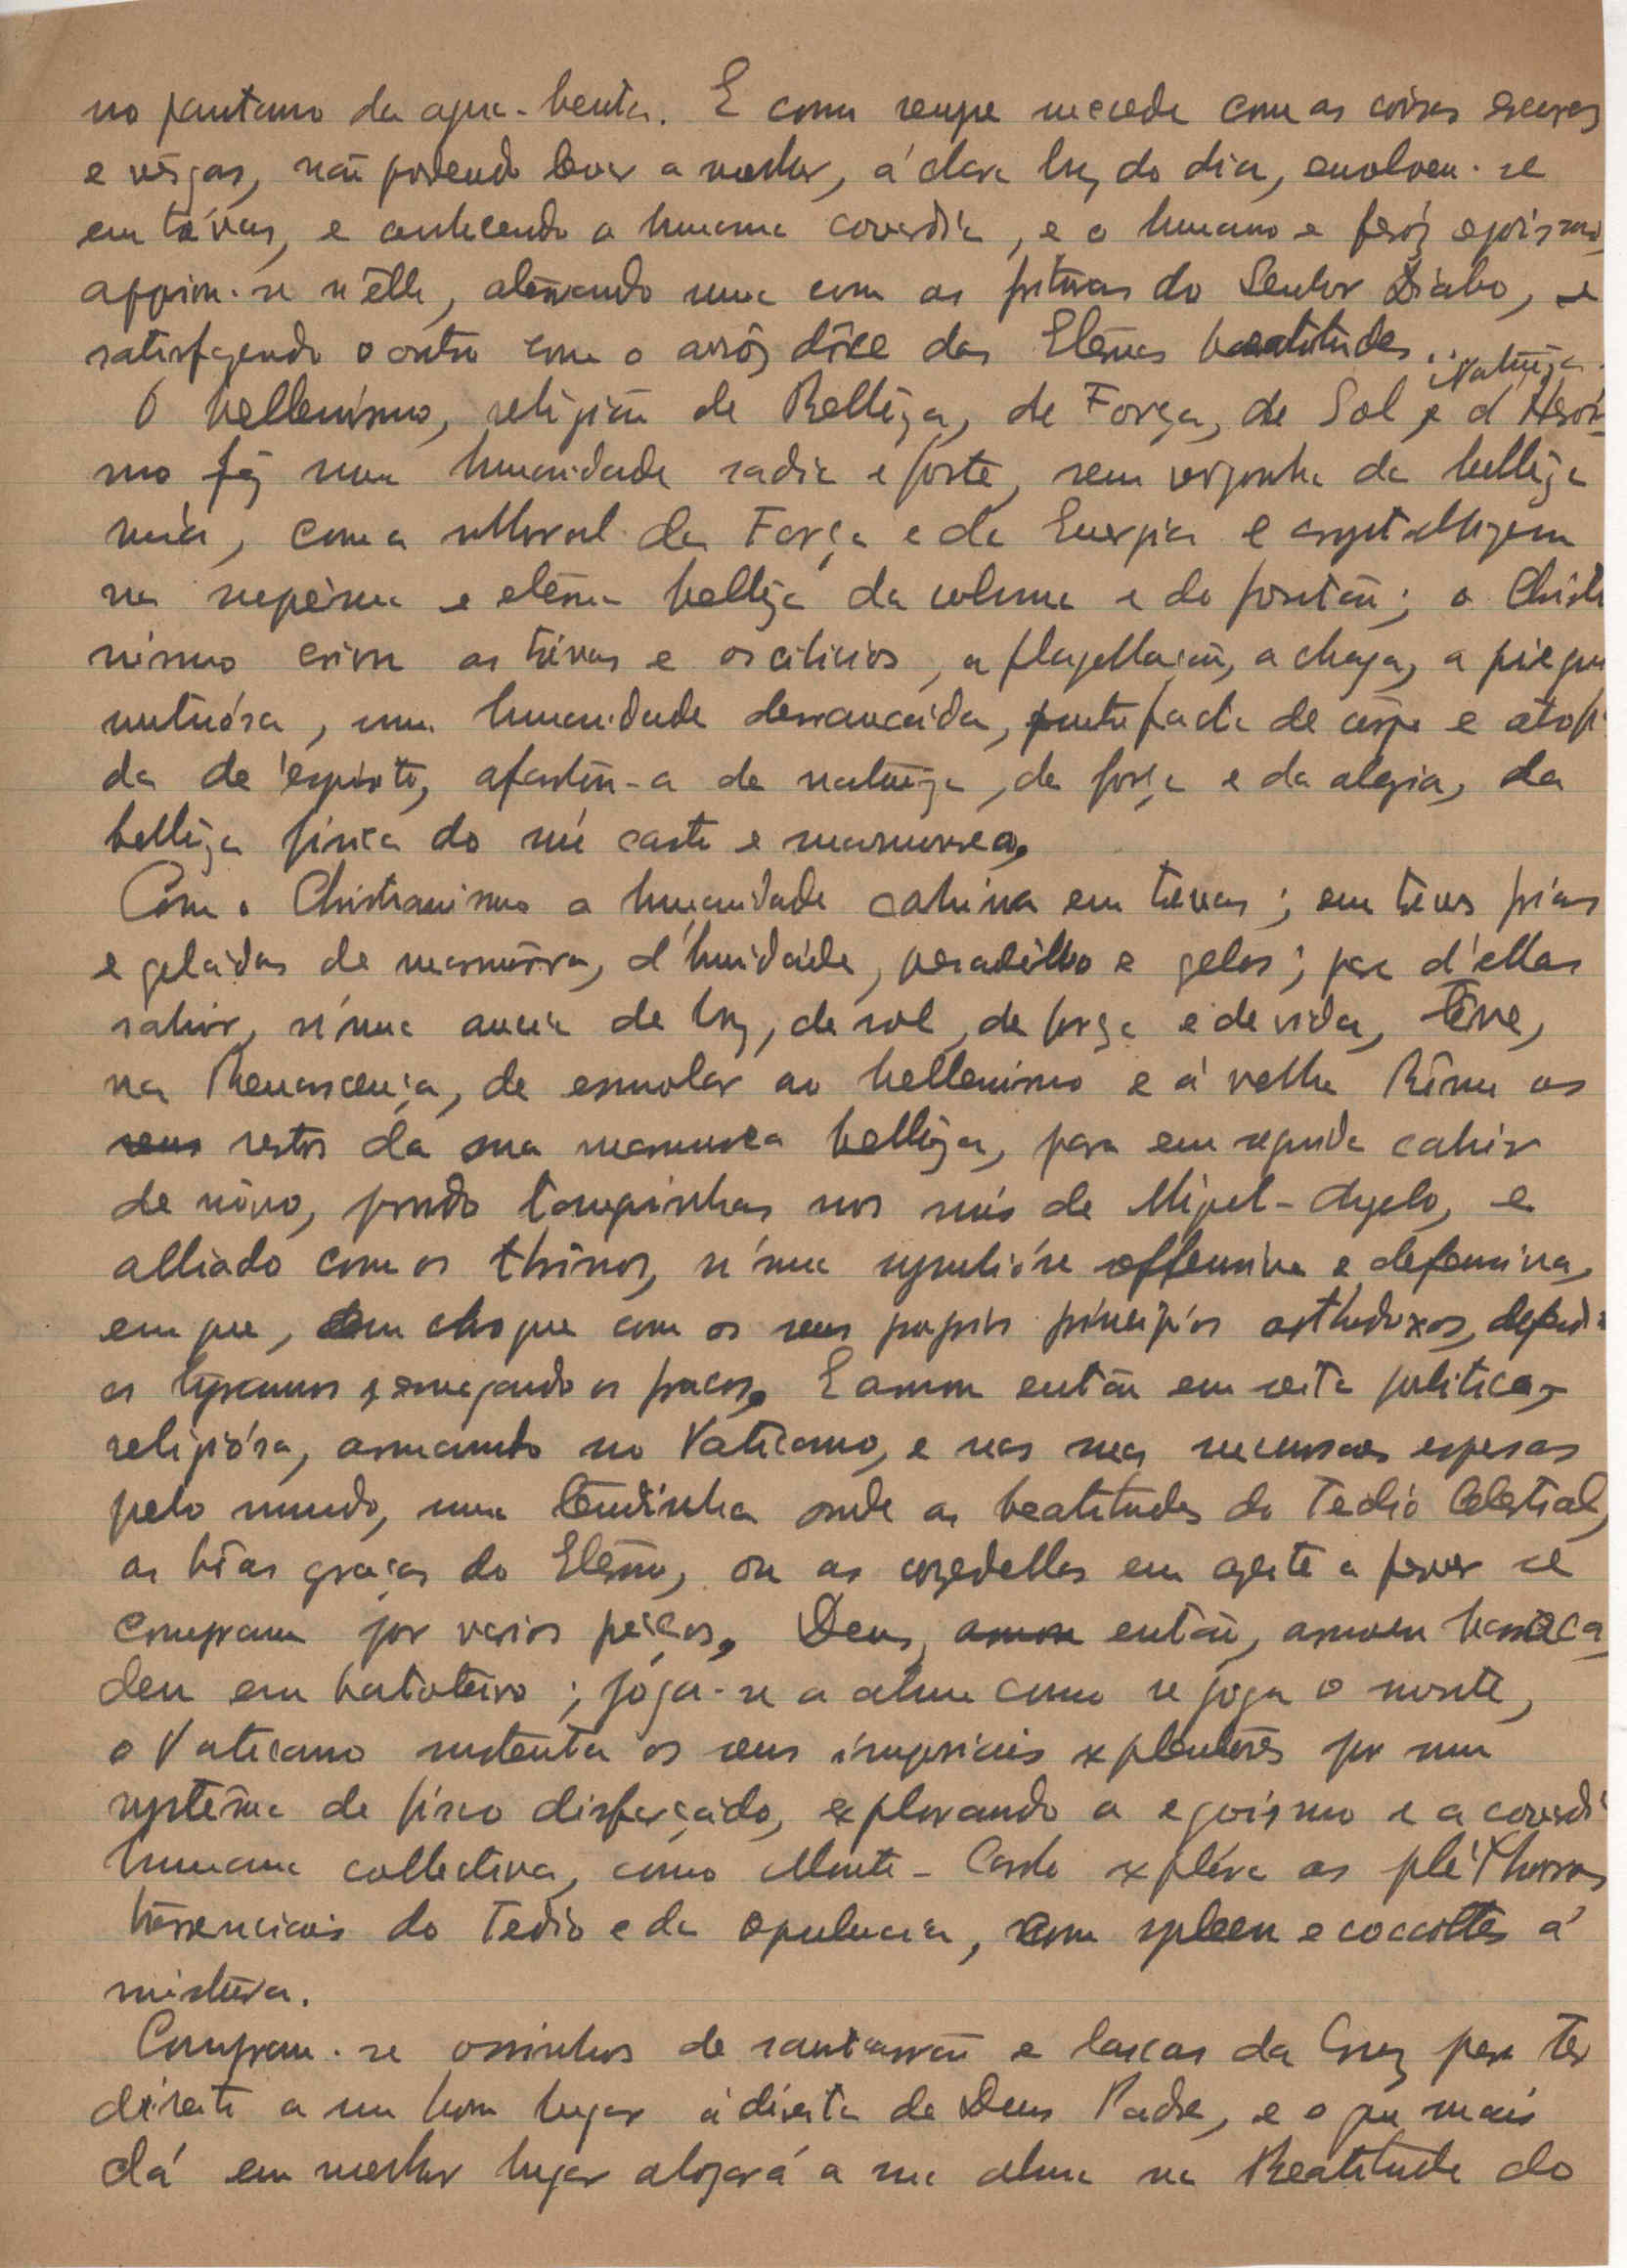 no pantano da agua-benta. E como sempre succede com as coisas escuras
e vêsgas, não podendo levar a melhor, á clara luz do dia, envolveu-se
em trévas, e conhecendo a humana covardia, e o humano e feróz egoismo,
appoiou-se n'elle, aterrando uma com as frituras do Senhor Diabo, e
satisfazendo o outro com o arrôz dôce das Eternas beatitudes...
O hellenismo, religião de Bellêza, de Força, de Sol, Naturêza e d'Herois-
mo fêz uma humanidade sadia e forte, sem vergonha da bellêza
núa, com a Moral da Força e da Energia e crystallizou-a
na suprêma e etérna bellêza da coluna e do frontão; o Christia
nismo criou as trévas e os cilicios, a flagellação, a chaga, a piegui
untuósa, uma humanidade desvancida, putrefacta de corpo e atrofi
da de espirito, afastou-a da naturêza, da força e da alegria, da
bellêza fisica do nú casto e marmoreo.
Com o Christianismo a humanidade cahira em trevas; em trevas frias
e geladas de masmôrra, d'humidade, pesadêllo e gelos; para d'ellas
sahir, n'uma ancia de luz, de sol, de força e de vida, têve,
na Renascença, de esmolar ao hellenismo e á velha Rôma os
seus restos da sua marmorea bellêza, para em seguida cahir
de nôvo, pondo tanguinhas nos nús de Miguel-Angelo, e
alliado com os thrônos, n'uma offensiva e defensiva,
em que, em choque com os seus proprios principios orthodoxos, defendia
os tyrannos esmagando os fracos. E armou então em seita politica-
religiósa, armando no Vaticano, e nas suas sucursaes espersas
pelo mundo, uma tendinha onde as beatitudes do Tedio Celestial,
as bôas graças do Eterno, ou as em azeite a ferver se
compram por varios prêços. Deus, então, armou
deu em batoteiro; jóga-se a alma como se joga o monte,
o Vaticano sustenta os seus imperiais esplendôres por um
systêma de fisco disfarçado, explorando o egoismo e a covardi
humana collectiva, como Monte-Carlo explóra as pléthoras
do Tedio e da opulencia, com spleen e coccottes á
mistura.
Compram-se ossinhos de santarrão e lascas da Cruz para ter
direito a um bom lugar á direita de Deus Padre, e o que mais
dá em melhor lugar alojará a sua alma na Beatitude do